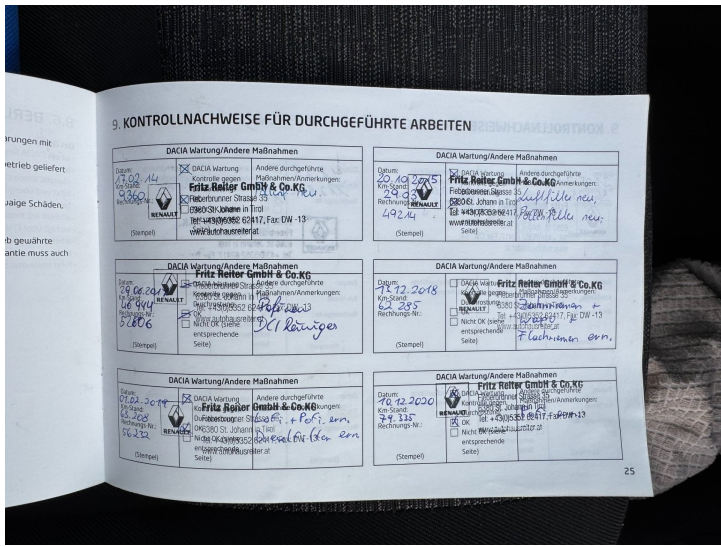 arungen mit
etrieb geliefert
uaige Schäden,
eb gewährte
antie muss auch
9. KONTROLLNACHWEISE FÜR DURCHGEFÜHRTE ARBEITEN
DACIA Wartung/Andere Maßnahmen
Datum:
17.02.14
Km-Stand:
9360
Rechnungs-Nr.:
(Stempel)
DACIA Wartung
Kontrolle gegen
Andere durchgeführte
Maßnahmen/Anmerkungen:
neu.
Fritz Reiter GmbH & Co.KG
Fieberbrunner Strasse 35
6380 St. Johann in Tirol
Tel: +43(0)5352 62417, Fax: DW -13
www.autohausreiter.at
RENAULT
DACIA Wartung/Andere Maßnahmen
Datum:
20.10.2015
Km-Stand:
Rechnungs-Nr.:
49214
(Stempel)
DACIA Wartung
Andere durchgeführte
Maßnahmen/Anmerkungen:
Luftfilter neu,
Pollenfilter neu.
Seite)
Fritz Reiter GmbH & Co.KG
Fieberbrunner Strasse 35
6380 St. Johann in Tirol
Tel: +43(0)5352 62417, Fax: DW -13
www.autohausreiter.at
RENAULT
DACIA Wartung/Andere Maßnahmen
Datum:
Km-Stand:
46944
Rechnungs-Nr.:
52606
(Stempel)
DACIA Wartung
OK
Nicht OK (siehe
entsprechende
Seite)
Andere durchgeführte
Maßnahmen/Anmerkungen:
DCI Reiniger
Fritz Reiter GmbH & Co.KG
Fieberbrunner Strasse 35
6380 St. Johann in Tirol
www.autohausreiter.at
RENAULT
DACIA Wartung/Andere Maßnahmen
Datum:
12.2018
Km-Stand:
62 285
Rechnungs-Nr.:
(Stempel)
OK
Nicht OK (siehe
entsprechende
Seite)
Andere durchgeführte
Maßnahmen/Anmerkungen:
Zahnriemen +
Wapu +
Flachriemen ern.
Fritz Reiter GmbH & Co.KG
Fieberbrunner Strasse 35
6380 St. Johann in Tirol
Tel: +43(0)5352 62417, Fax: DW -13
www.autohausreiter.at
RENAULT
DACIA Wartung/Andere Maßnahmen
Datum:
01.02.2019
Km-Stand:
63.208
Rechnungs-Nr.:
56232
(Stempel)
DACIA Wartung
Kontrolle gegen
Durchrostung
OK
Nicht OK (siehe
entsprechende
Seite)
Andere durchgeführte
Maßnahmen/Anmerkungen:
+ Pofi. ern.
Dieselfilter ern
Fritz Reiter GmbH & Co.KG
Fieberbrunner Strasse 35
6380 St. Johann in Tirol
www.autohausreiter.at
RENAULT
DACIA Wartung/Andere Maßnahmen
Datum:
10.12.2020
Km-Stand:
79.335
Rechnungs-Nr.:
(Stempel)
DACIA Wartung
Kontrolle gegen
Durchrostung
OK
Nicht OK (siehe
entsprechende
Seite)
Andere durchgeführte
Maßnahmen/Anmerkungen:
Fritz Reiter GmbH & Co.KG
Fieberbrunner Strasse 35
6380 St. Johann in Tirol
www.autohausreiter.at
RENAULT
25